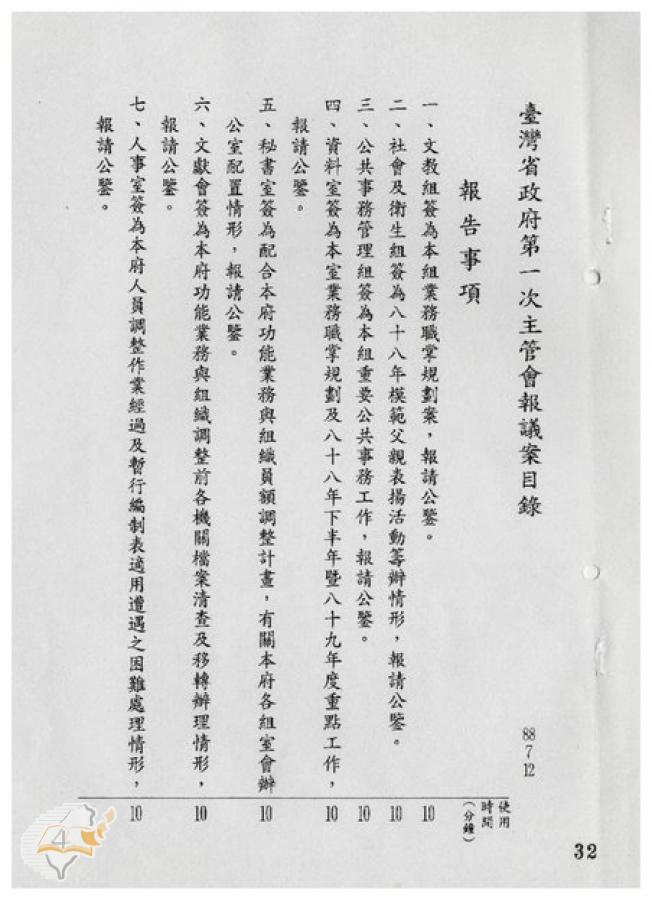 臺灣省政府第一次主管會報議案目錄
88 7 12
報告事項
使用時間(分鐘)
一、文教組簽為本組業務職掌規劃案，報請公鑒。
10
二、社會及衛生組簽為八十八年模範父親表揚活動籌辦情形，報請公鑒。
10
三、公共事務管理組簽為本組重要公共事務工作，報請公鑒。
10
四、資料室簽為本室業務職掌規劃及八十八年下半年暨八十九年度重點工作，
報請公鑒。
10
五、秘書室簽為配合本府功能業務與組織員額調整計畫，有關本府各組室會辦
公室配置情形，報請公鑒。
10
六、文獻會簽為本府功能業務與組織調整前各機關檔案清查及移轉辦理情形，
報請公鑒。
10
七、人事室簽為本府人員調整作業經過及暫行編制表適用遭遇之困難處理情形，
報請公鑒。
10
32
4